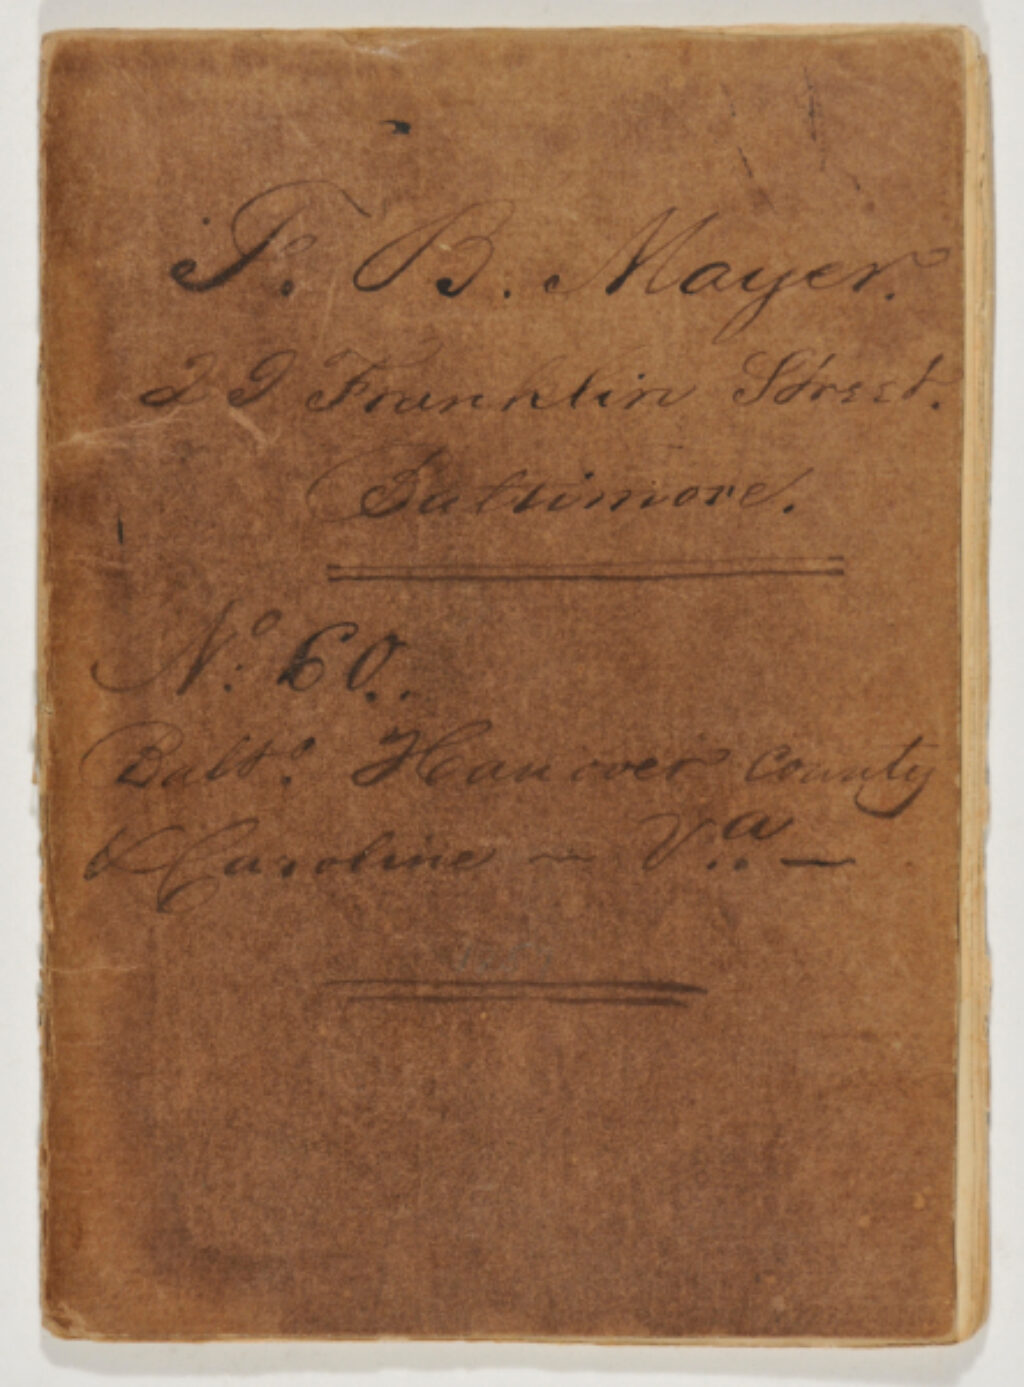 F. B. Mayer.
29 Franklin Street.
Baltimore.
No. 60.
Balto. Hanover County
& Caroline ~ Va. —